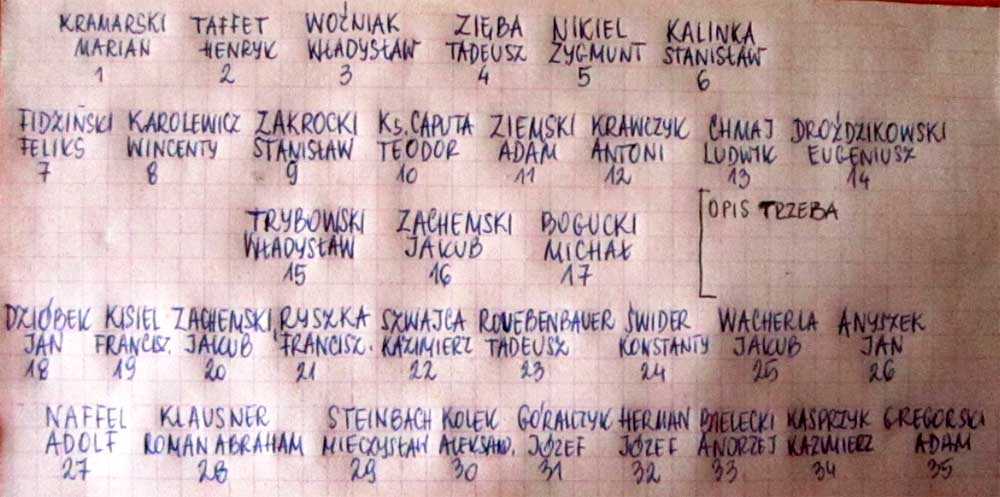 KRAMARSKI TAFFET WOŹNIAK ZIĘBA NIKIEL KALINKA
MARIAN HENRYK WŁADYSŁAW TADEUSZ ZYGMUNT STANISŁAW
1 2 3 4 5 6
FIDZIŃSKI KAROLEWICZ ZAKROCKI KS. CAPUTA ZIEMSKI KRAWCZYK CHMAJ DROŹDZIKOWSKI
FELIKS WINCENTY STANISŁAW TEODOR ADAM ANTONI LUDWIK EUGENIUSZ
7 8 9 10 11 12 13 14
TRYBOWSKI ZACHEMSKI BOGUCKI OPIS TRZEBA
WŁADYSŁAW JAKUB MICHAŁ
15 16 17
DZIÓBEK KISIEL ZACHEMSKI RYSZKA SZWAJCA ROUEBENBAUER ŚWIDER WACHERLA ANYSZEK
JAN FRANCISZ. JAKUB FRANCISZ. KAZIMIERZ TADEUSZ KONSTANTY JAKUB JAN
18 19 20 21 22 23 24 25 26
NAFFEL KLAUSNER STEINBACH KOLEK GÓRALCZYK HERMAN BIELECKI KASPRZYK GREGORSKI
ADOLF ROMAN ABRAHAM MIECZYSŁAW ALEKSAND. JÓZEF JÓZEF ANDRZEJ KAZIMIERZ ADAM
27 28 29 30 31 32 33 34 35